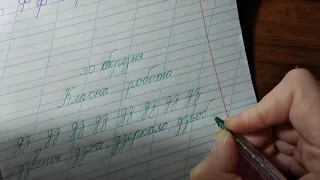 30 березня
Класна робота
дз дз дз дз дз дз дз дз
дзвінок, дзьоб, дзеркало, дзьоб